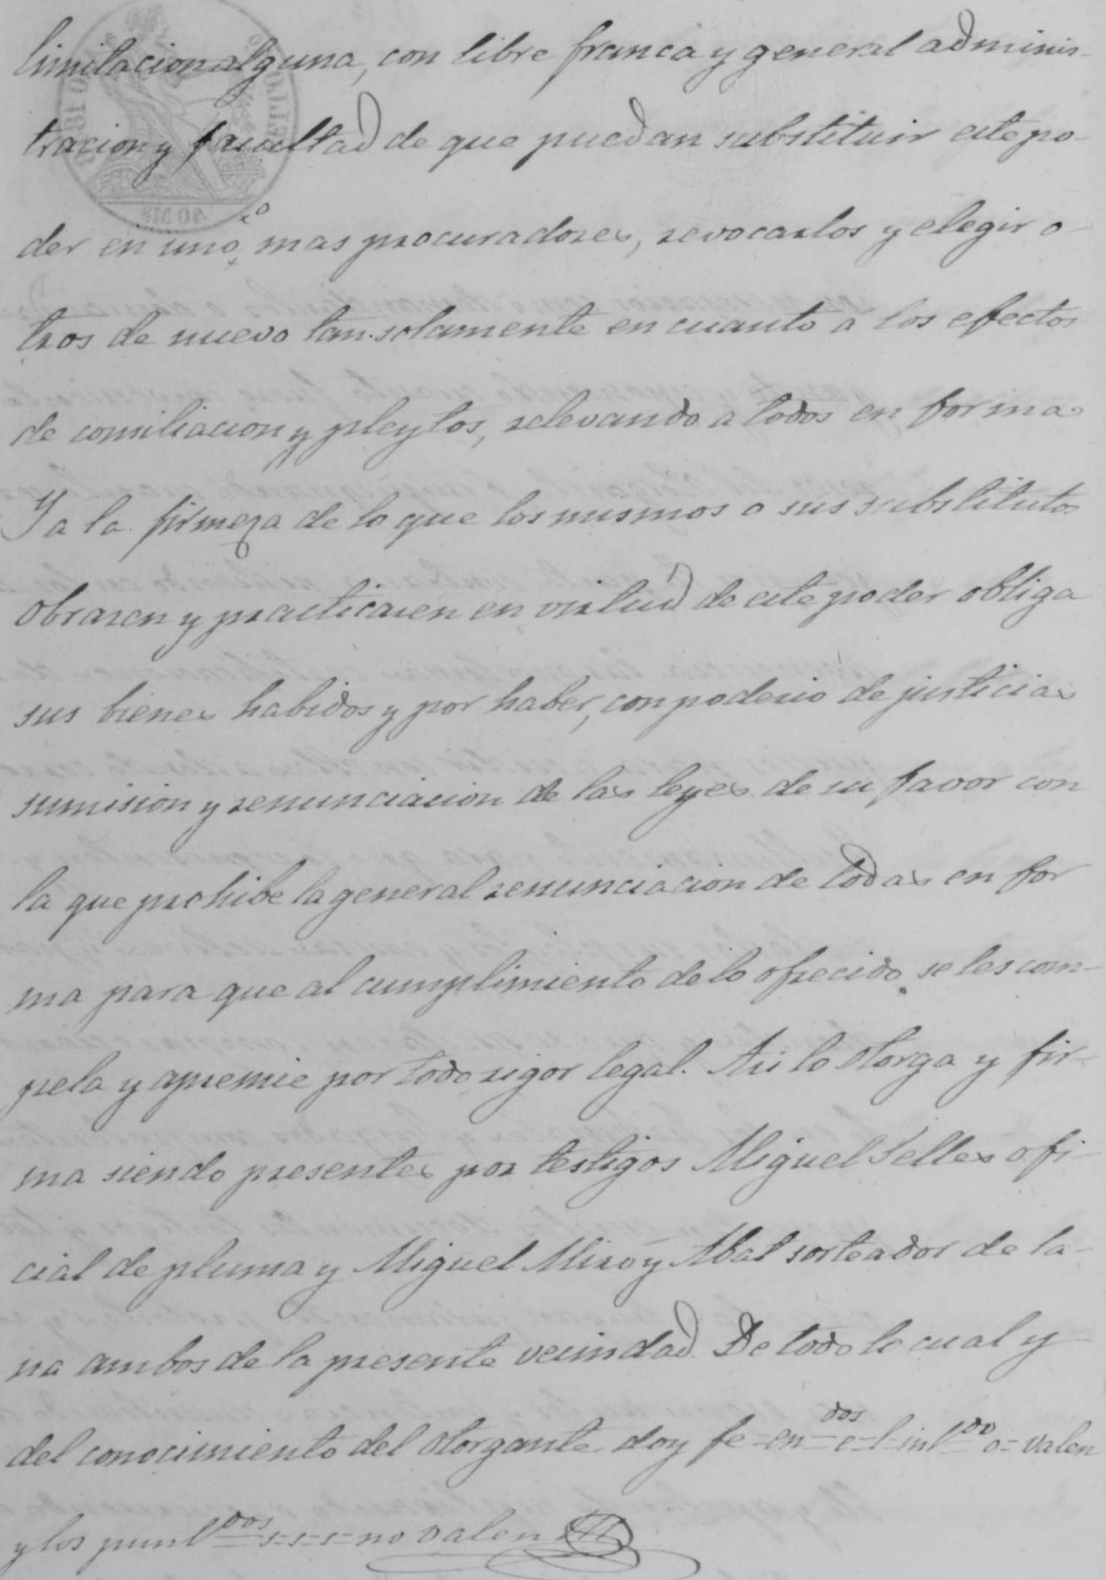 limitacion alguna, con libre franca y general adminis-
tracion y facultad de que puedan substituir este po-
der en uno o mas procuradores, revocarlos y elegir o-
tros de nuevo tan solamente en cuanto á los efectos
de consiliacion y pleytos, relevando a todos en forma.
Y a la firmeza de lo que los mismos o sus substitutos
obraren y practicaren en virtud de este poder obliga
sus bienes habidos y por haber, con poderio de justicias
sumision y renunciacion de las leyes de su favor con
la que prohibe la general renunciacion de todas en for
ma para que al cumplimiento de lo ofrecido se les com-
pela y apremie por todo rigor legal. Asi lo otorga y fir-
ma siendo presentes por testigos Miguel Selles ofi-
cial de pluma y Miguel Miró y Abat sorteador de la-
na ambos de la presente vecindad. De todo lo cual y
del conocimiento del otorgante doy fe=en=dos e=l=int.do o=valen
y los punt.dos s=s=s=no valen